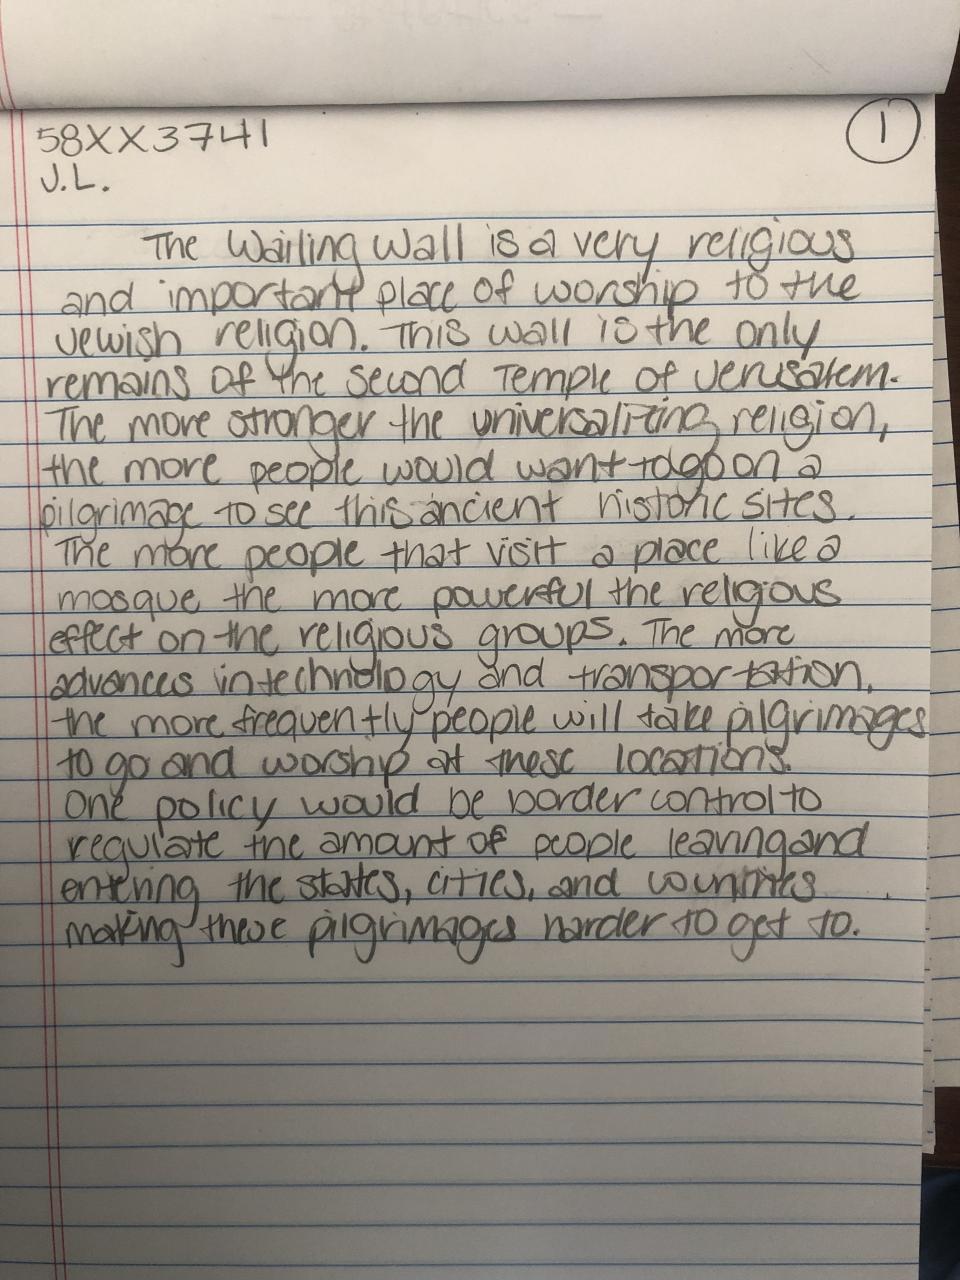 58XX3741
1
J.L.
The Wailing Wall is a very religious
and important place of worship to the
Jewish religion. This wall is the only
remains of the Second Temple of Jerusalem.
The more stronger the universalizing religion,
the more people would want to go on a
pilgrimage to see this ancient historic sites.
The more people that visit a place like a
mosque the more powerful the religious
effect on the religious groups. The more
advances in technology and transportation,
the more frequently people will take pilgrimages
to go and worship at these locations.
One policy would be border control to
regulate the amount of people leaving and
entering the states, cities, and countries
making these pilgrimages harder to get to.